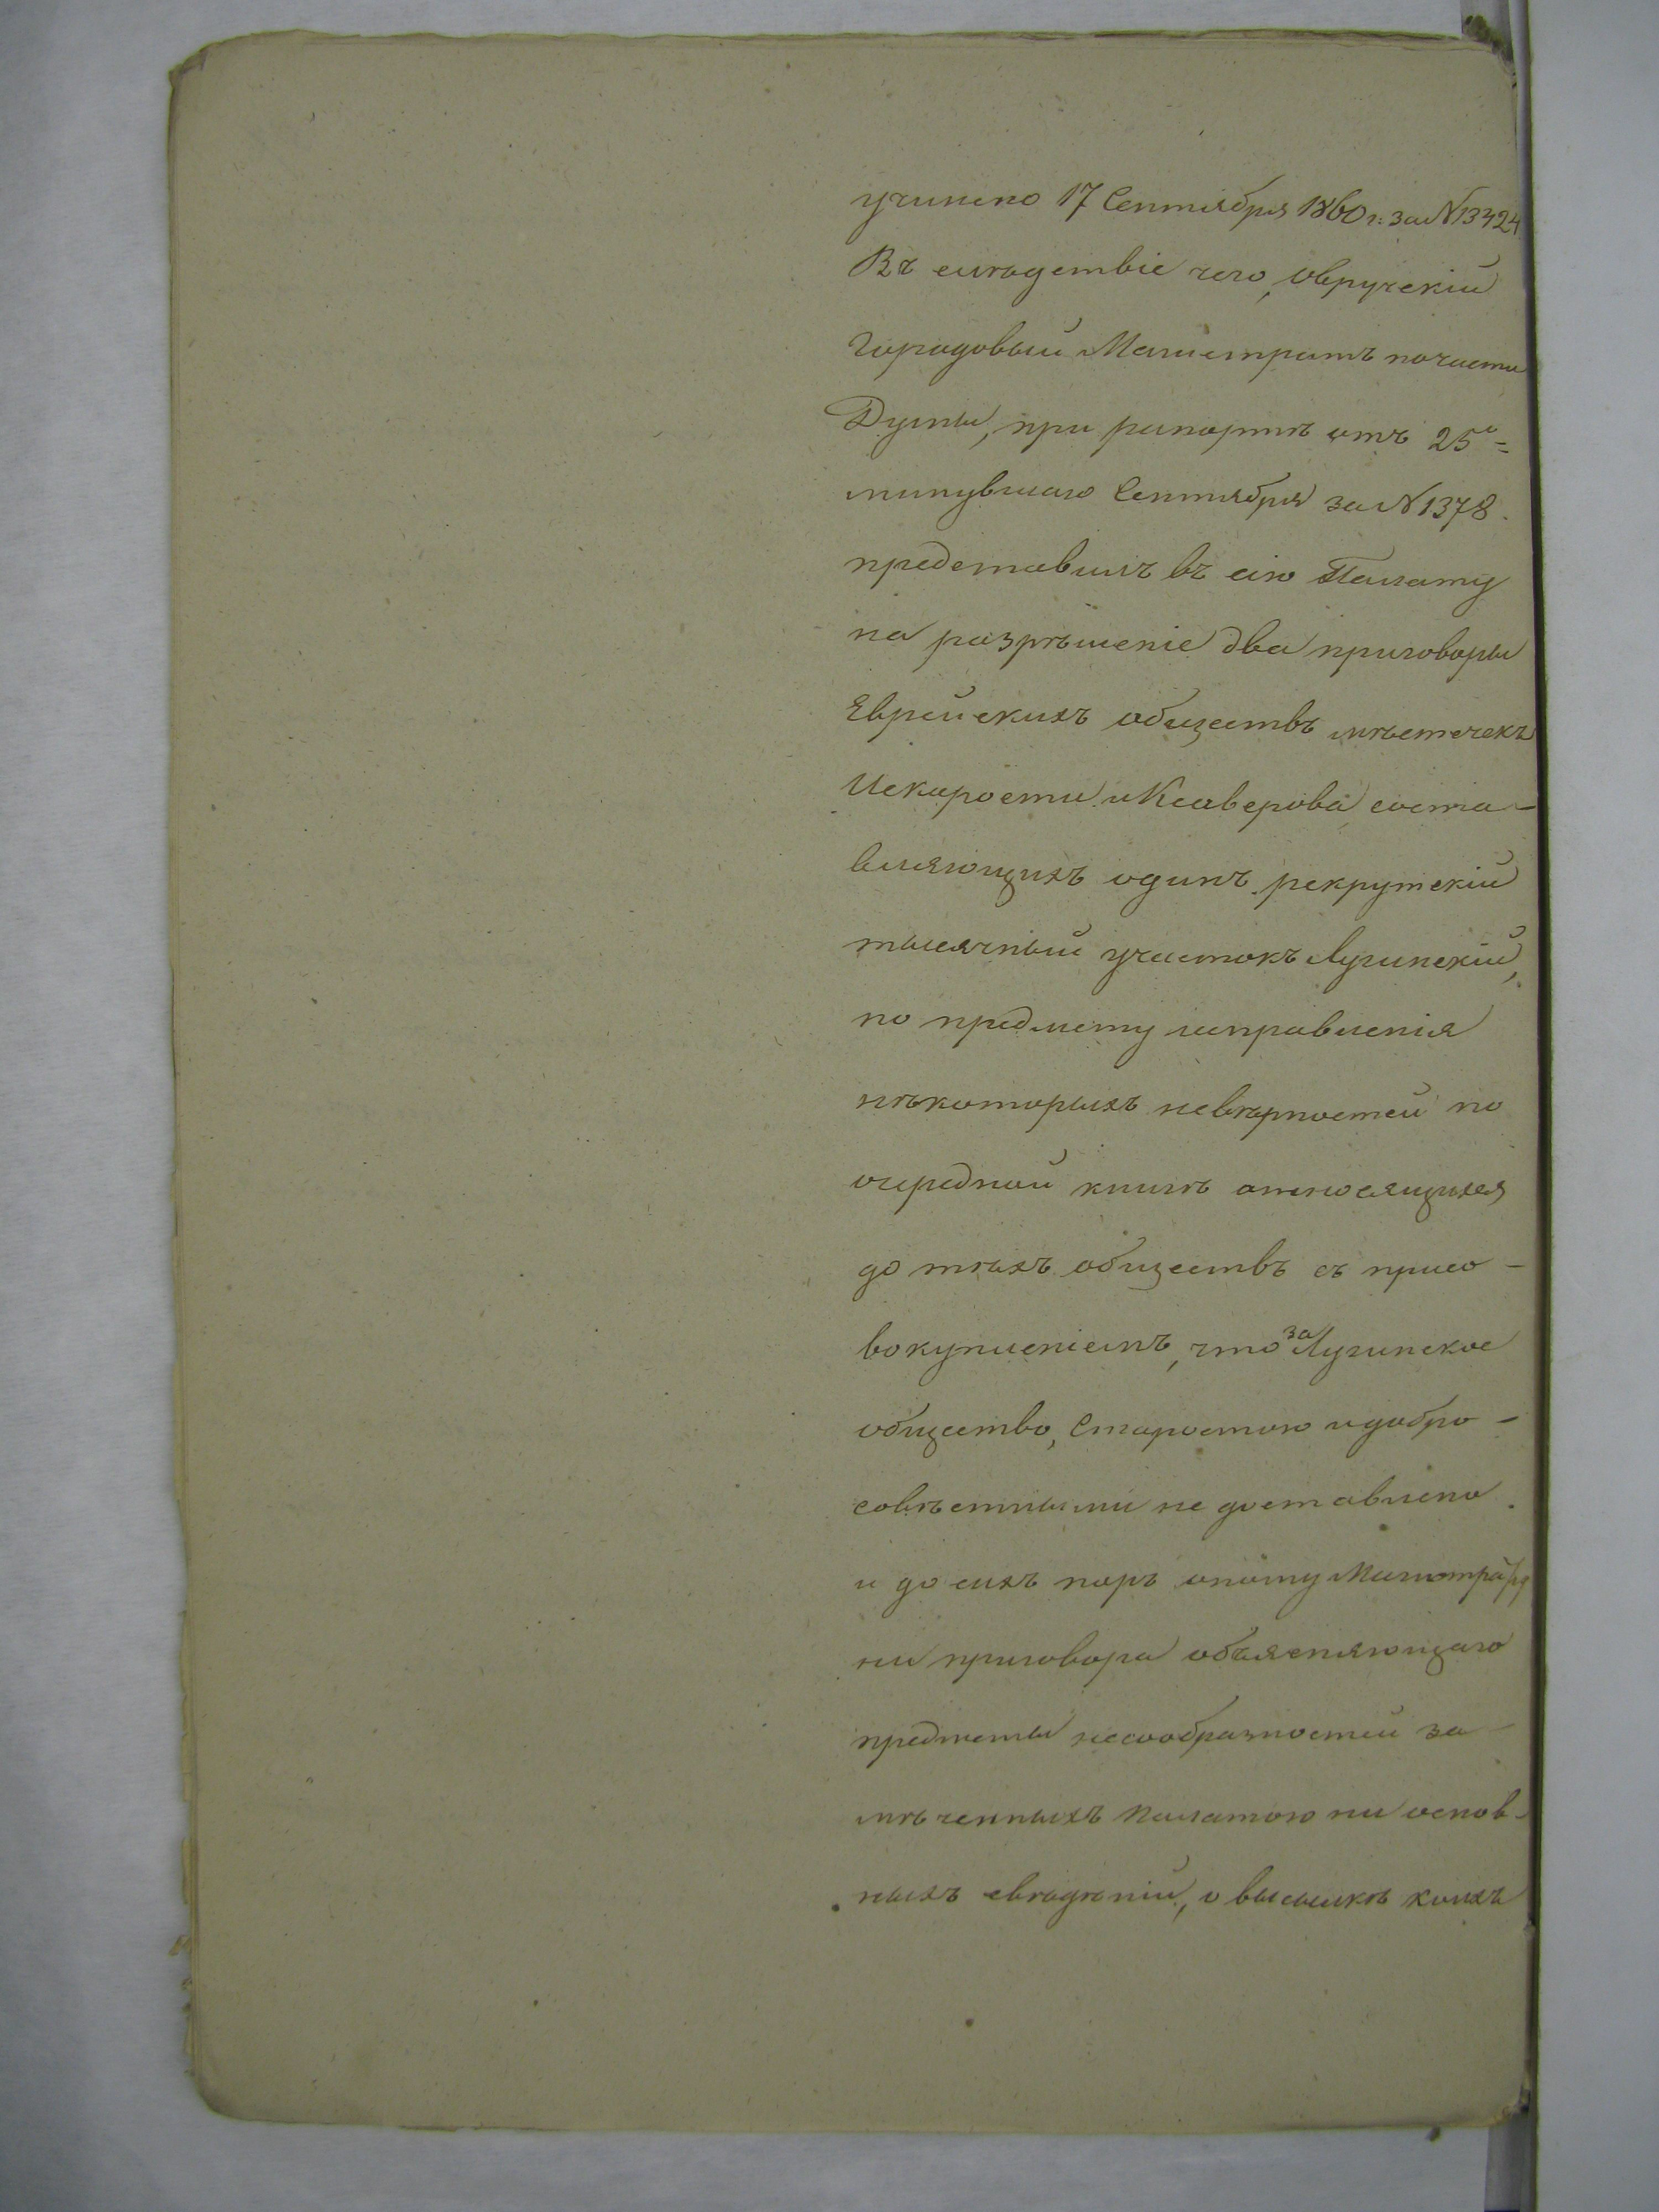 учинено 17 Сентября 1860 г: за № 13424
Въ слѣдствіе чего, Овручскій
Городовый Магистратъ по части
Думы, при рапортѣ отъ 25º=
минувшаго Сентября за № 1378.
представилъ въ сію Палату
на разрѣшеніе два приговоры
Еврейскихъ обществъ мѣстечекъ
Искорости и Ксаверова соста-
вляющихъ одинъ рекрутскій
тысячный участокъ Лугинскій,
по предмету исправленія
нѣкоторыхъ невѣрностей по
очередной книгѣ относящихся
до тѣхъ обществъ съ присо-
вокупленіемъ, что за Лугинское
общество, Старостою и добро-
совѣстными не доставлено
и до сихъ поръ оному Магистрату
ни приговора объясняющаго
предметы несообразностей за-
мѣченныхъ Палатою ни основ-
ныхъ свѣдѣній, о высылкѣ коихъ